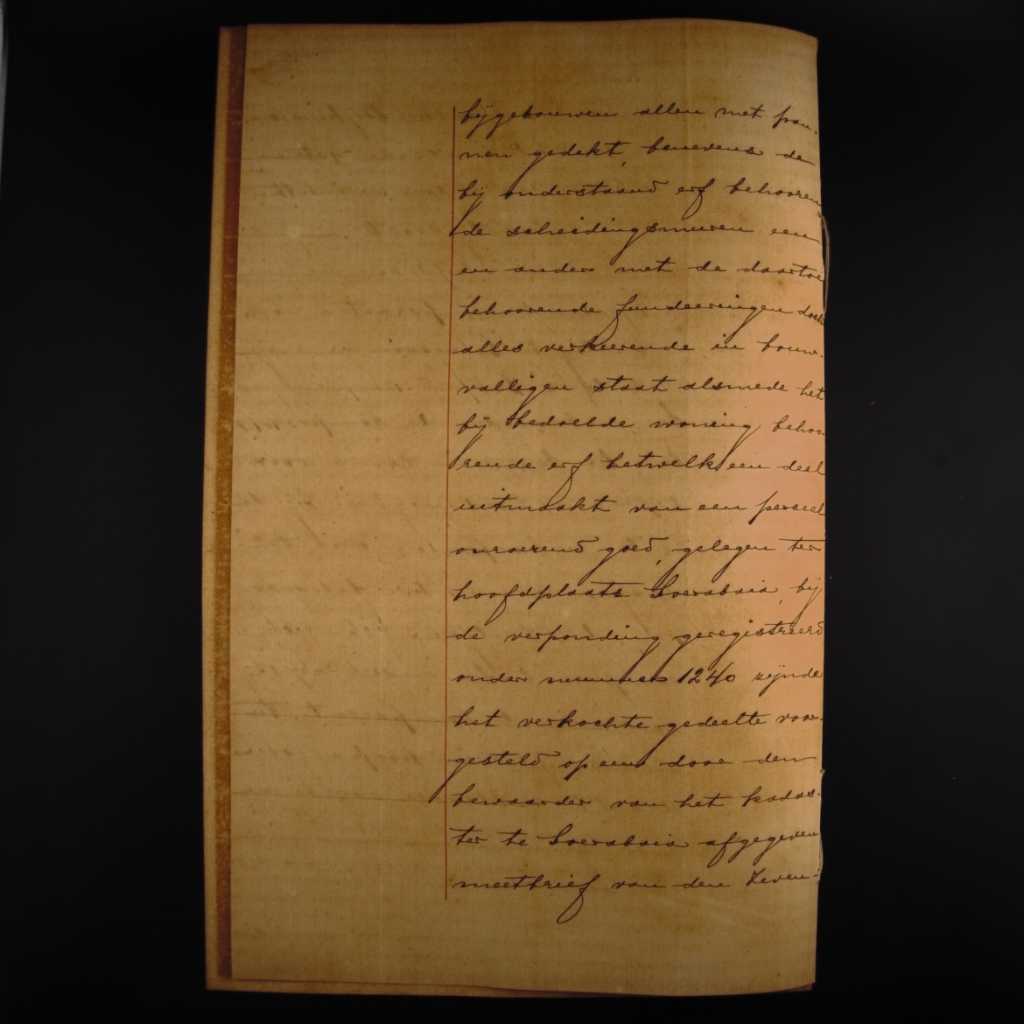 bijgebouwen allen met pan-
nen gedekt, benevens de
bij onderstaand erf behooren
de scheidingsmuren een
en ander met de daartoe
behoorende fundeeringen doch
alles verkeerende in bouw-
valligen staat alsmede het
bij bedoelde woning behoo
rende erf hetwelk een deel
uitmaakt van een perceel
onroerend goed, gelegen ter
hoofdplaats Soerabaia, bij
de verponding geregistreerd
onder nummer 1240 zijnde
het verkochte gedeelte voor-
gesteld op een door den
bewaarder van het kadas-
ter te Soerabaia afgegeven
meetbrief van den zeven-